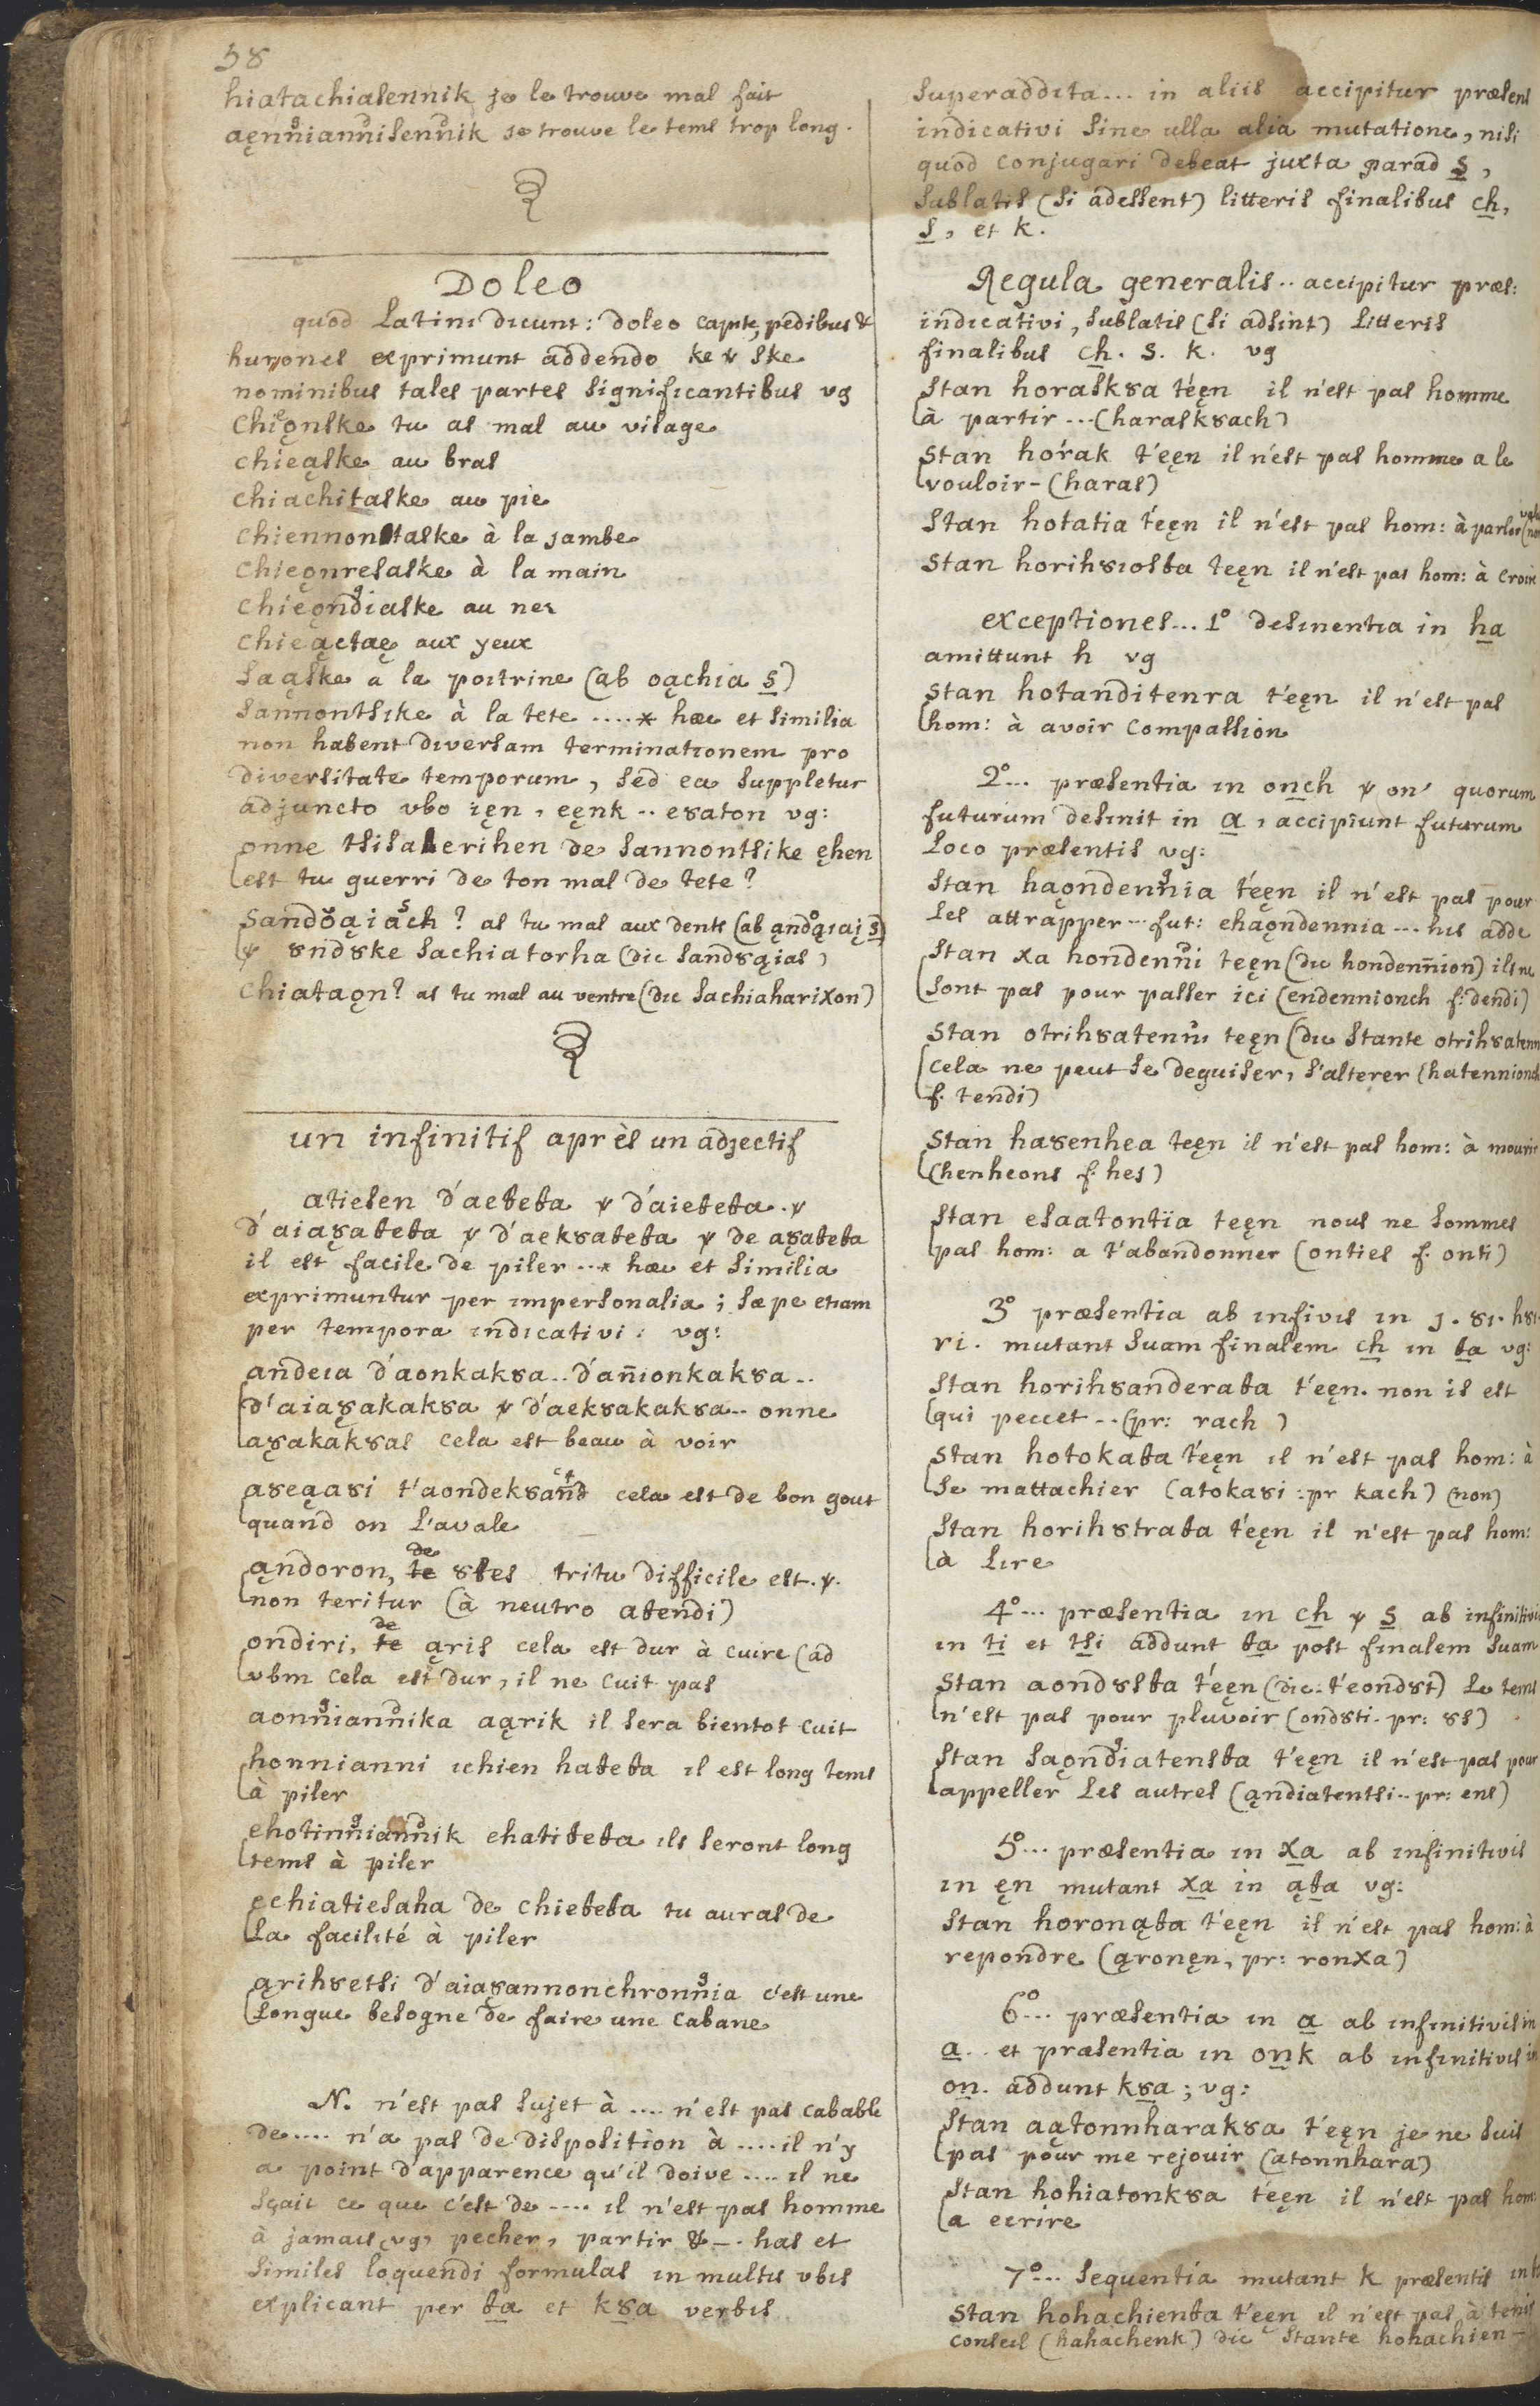 58
hiatachiasennik je le trouve mal fait
aęnniannisennik je trouve le tems trop long.
Doleo
quod Latini dicunt: doleo capite, pedibus &
hurones exprimunt addendo ke v ske
nominibus tales partes significantibus vg
chięǫnske tu as mal au visage
chieąske au bras
chiachitaske au pie
chiennontaske à la jambe
chieǫnresaske à la main
chieǫndiaske au nez
chieąctaę aux yeux
saąske a la poitrine (ab oąchia s)
sannontsike à la tete ....* hæc et similia
non habent diversam terminationem pro
diversitate temporum, sed ea suppletur
adjuncto vbo ięn, eęnk .. eȣaton vg:
onne tsisaterihen de sannontsike ęhen
est tu guerri de ton mal de tete?
sandȣąiach? as tu mal aux dents (ab ąndȣąiaį s)
v ȣndȣke sachiatorha (dic sandȣąias)
chiataǫn? as tu mal au ventre (dic sachiaharixon)
un infinitif après un adjectif
atiesen d'aeteta v d'aieteta . v
d'aiaȣateta v d'aekȣateta v de aȣateta
il est facile de piler ..* hæc et similia
exprimuntur per impersonalia; sæpe etiam
per tempora indicativi: vg:
andeia d'aonkakȣa.. d'annionkakȣa ..
d'aiaȣakakȣa v d'aekȣakakȣa.. onne
aȣakakȣas cela est beau à voir
aȣeąȣi t'aondekȣand cela est de bon gout
quand on l'avale
ąndoron, de ȣtes tritu difficile est . v.
non teritur (à neutro atendi)
ondiri, de ąris cela est dur à cuire (ad
vbm cela est dur, il ne cuit pas
aonniannika aąrik il sera bientot cuit
honnianni ichien hateta il est long tems
à piler
ehotinniannik ehatiteta ils seront long
tems à piler
echiatiesaha de chieteta tu auras de
la facilité à piler
ąrihȣetsi d'aiaȣannonchronnia c'est une
longue besogne de faire une cabane
N. n'est pas sujet à .... n'est pas cabable
de .... n'a pas de disposition à .... il n'y
a point d'apparence qu'il doive .... il ne
sçait ce que c'est de .... il n'est pas homme
à jamais, vg, pecher, partir & -. has et
similes loquendi formulas in multis vbis
explicant per ta et kȣa verbis
superaddita ... in aliis accipitur præsens
indicativi sine ulla alia mutatione, nisi
quod conjugari debeat juxta parad s,
sublatis (si adessent) litteris finalibus ch,
s, et k.
Regula generalis .. accipitur præs:
indicativi, sublatis (si adsint) litteris
finalibus ch. s. k. vg
stan horaskȣa t'eęn il n'est pas homme
à partir ... (haraskȣach)
stan horak t'eęn il n'est pas homme a le
vouloir - (haras)
stan hotatia t'eęn il n'est pas hom: à parler
stan horihȣiosta teęn il n'est pas hom: à croire
exceptiones ... 1º desinentia in ha
amittunt h vg
stan hotanditenra t'eęn il n'est pas
hom: à avoir compassion
2º ... præsentia in onch v on' quorum
futurum desinit in a, accipiunt futurum
loco præsentis vg:
stan haǫndennia t'eęn il n'est pas pour
les attrapper ... fut: ehaǫndennia ... his adde
stan xa hondenni teęn (dic hondennion) ils ne
sont pas pour passer ici (endennionch f: dendi)
stan otrihȣatenni teęn (dic stante otrihȣatenn
cela ne peut se deguiser, s'alterer (hatennionch
f. tendi)
stan haȣenhea teęn il n'est pas hom: à mourir
(henheons f. hes)
stan esaatontïa teęn nous ne sommes
pas hom: a t'abandonner (onties f. onti)
3º præsentia ab infivis in j. ȣi. hȣi.
ri. mutant suam finalem ch in ta vg:
stan horihȣanderata t'eęn. non is est
qui peccet .. (pr: rach)
stan hotokata t'eęn il n'est pas hom: à
se mattachier (atokaȣi : pr kach) (non)
stan horihȣtrata t'eęn il n'est pas hom:
à lire
4º ... præsentia in ch v s ab infinitivis
in ti et tsi addunt ta post finalem suam
stan aondȣsta t'eęn (dic: t'eondȣt) le tems
n'est pas pour pluvoir (ondȣti. pr: ȣs)
stan saǫndiatensta t'eęn il n'est pas pour
appeller les autres (ąndiatentsi .. pr: ens)
5º ... præsentia in xa ab infinitivis
in ęn mutant xa in ąta vg:
stan horonąta t'eęn il n'est pas hom: à
repondre (ąronęn, pr: ronxa)
6º ... præsentia in a ab infinitivis in
a .. et præsentia in onk ab infinitivis in
on. addunt kȣa; vg:
stan aątonnharakȣa t'eęn je ne suis
pas pour me rejouir (atonnhara)
stan hohiatonkȣa t'eęn il n'est pas hom:
a ecrire
7º ... sequentia mutant k præsentis in
stan hohachienta t'eęn il n'est pas à tenir
conseil (hahachenk) dic stante hohachien -